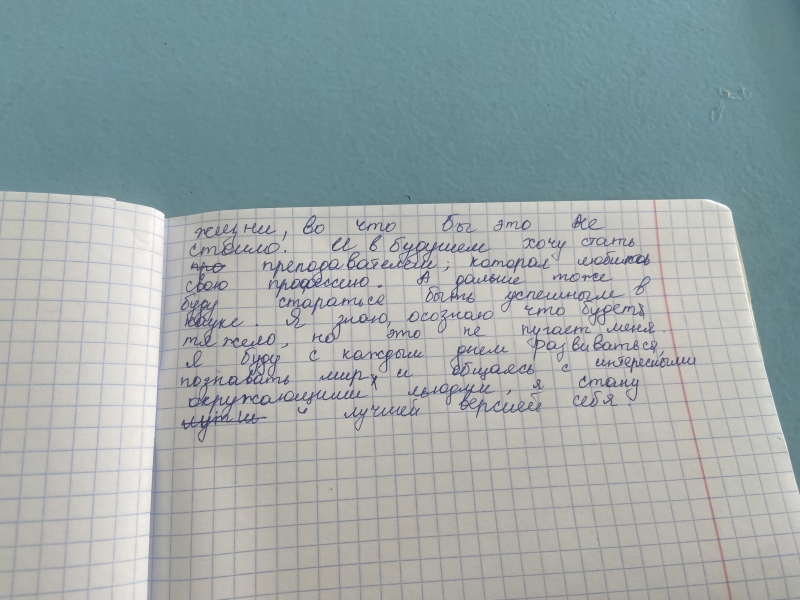 жизни, во что бы это не
стоило. И в будущем хочу стать
преподавателем, которая любит
свою профессию. А дальше тоже
буду стараться быть успешным в
науке. Я знаю, осознаю что будет
тяжело, но это не пугает меня.
Я буду с каждым днем развиваться,
познавать мир, и общаясь с интересными
окружающими людьми, я стану
лучшей версией себя.